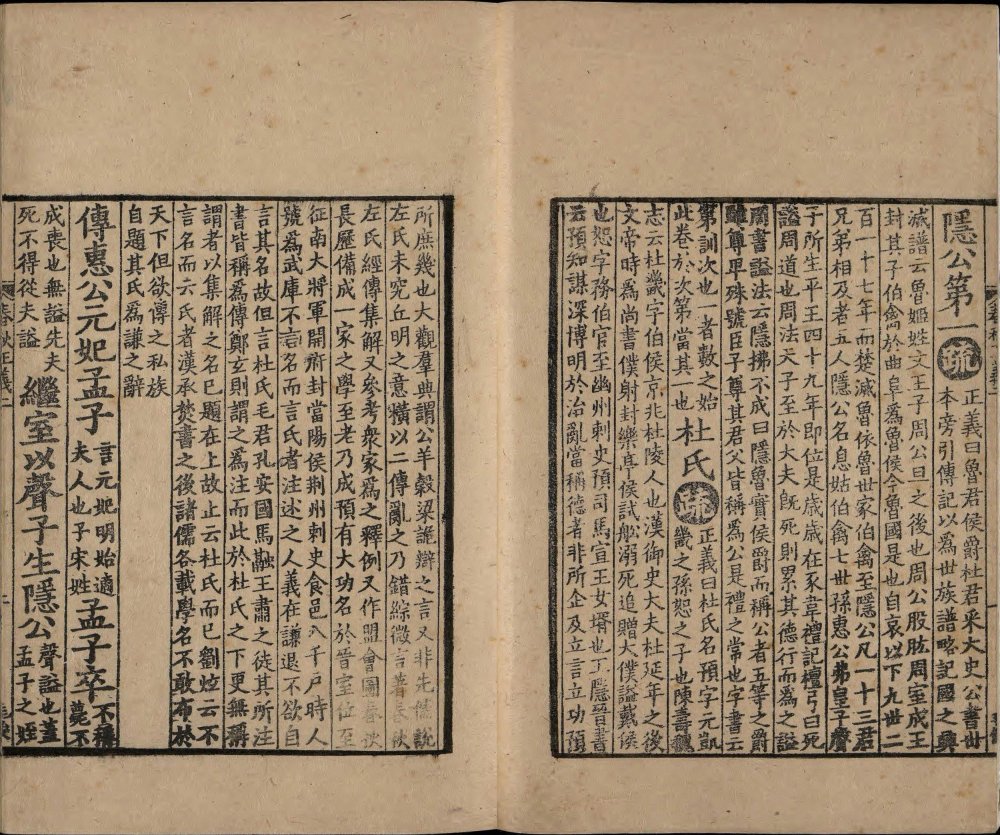 隱公第一疏正義曰魯君侯爵杜君采大史公書世
滅譜云魯姬姓文王子周公旦之後也周公股肱周室成王
本旁引傳記以爲世族譜略記國之興
封其子伯禽於曲阜爲魯侯今魯國是也自哀以下九世二
百一十七年而楚滅魯依魯世家伯禽至隱公凡一十三君
兄弟相及者五人隱公名息姑伯禽七世孫惠公弗皇子聲
子所生平王四十九年即位是歲歲在豕韋禮記檀弓曰死
謚周道也周法天子至於大夫旣死則累其德行而爲之謚
周書謚法云隱拂不成曰隱魯實侯爵而稱公者五等之爵
雖尊卑殊號臣子尊其君父皆稱爲公是禮之常也字書云
第訓次也一者數之始
此卷於次第當其一也杜氏疏正義曰杜氏名預字元凱
畿之孫恕之子也陳壽魏
志云杜畿字伯侯京兆杜陵人也漢御史大夫杜延年之後
文帝時爲尚書僕射封樂亭侯試船溺死追贈大僕謚戴侯
也恕字務伯官至幽州刺史預司馬宣王女壻也王隱晉書
云預知謀深博明於治亂當稱德者非所企及立言立功預
所庶幾也大觀羣典謂公羊榖梁詭辯之言又非先儒說
左氏未究丘明之意橫以二傳亂之乃錯綜微言著春秋
左氏經傳集解又參考衆家爲之釋例又作盟會圖春秋
長歷備成一家之學至老乃成預有大功名於晉室位至
征南大將軍開府封當陽侯荆州刺史食邑八千戶時人
號爲武庫不言名而言氏者注述之人義在謙退不欲自
言其名故但言杜氏毛君孔安國馬融王肅之徒其所注
書皆稱爲傳鄭玄則謂之爲注而此於杜氏之下更無稱
謂者以集解之名已題在上故止云杜氏而已劉炫云不
言名而云氏者漢承焚書之後諸儒各載學名不敢布於
天下但欲傳之私族
自題其氏爲謙之辭
傳惠公元妃孟子言元妃明始適
夫人也子宋姓孟子卒不稱
薨不
成喪也無謚先夫
死不得從夫謚繼室以聲子生隱公聲謚也蓋
孟子之姪